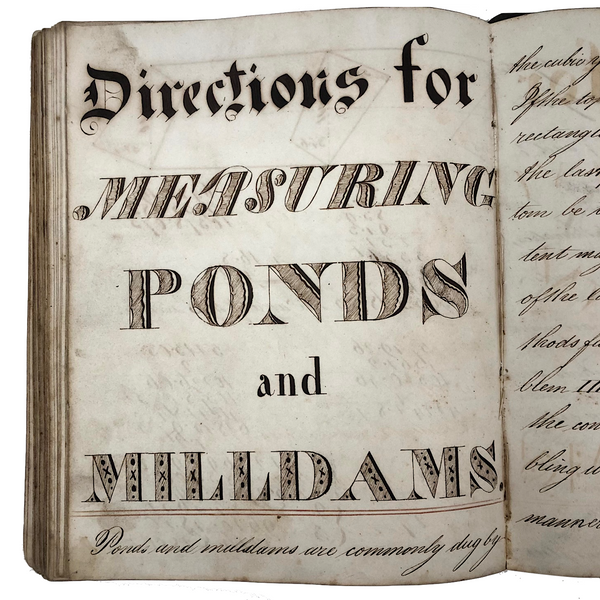 Directions for
MEASURING
PONDS
and
MILLDAMS.
Ponds and milldams are commonly dug by
the cubic y
If the to
rectangu
the las
tom be
tent ma
of the l
thods fu
blem III
the con
bling u
manner